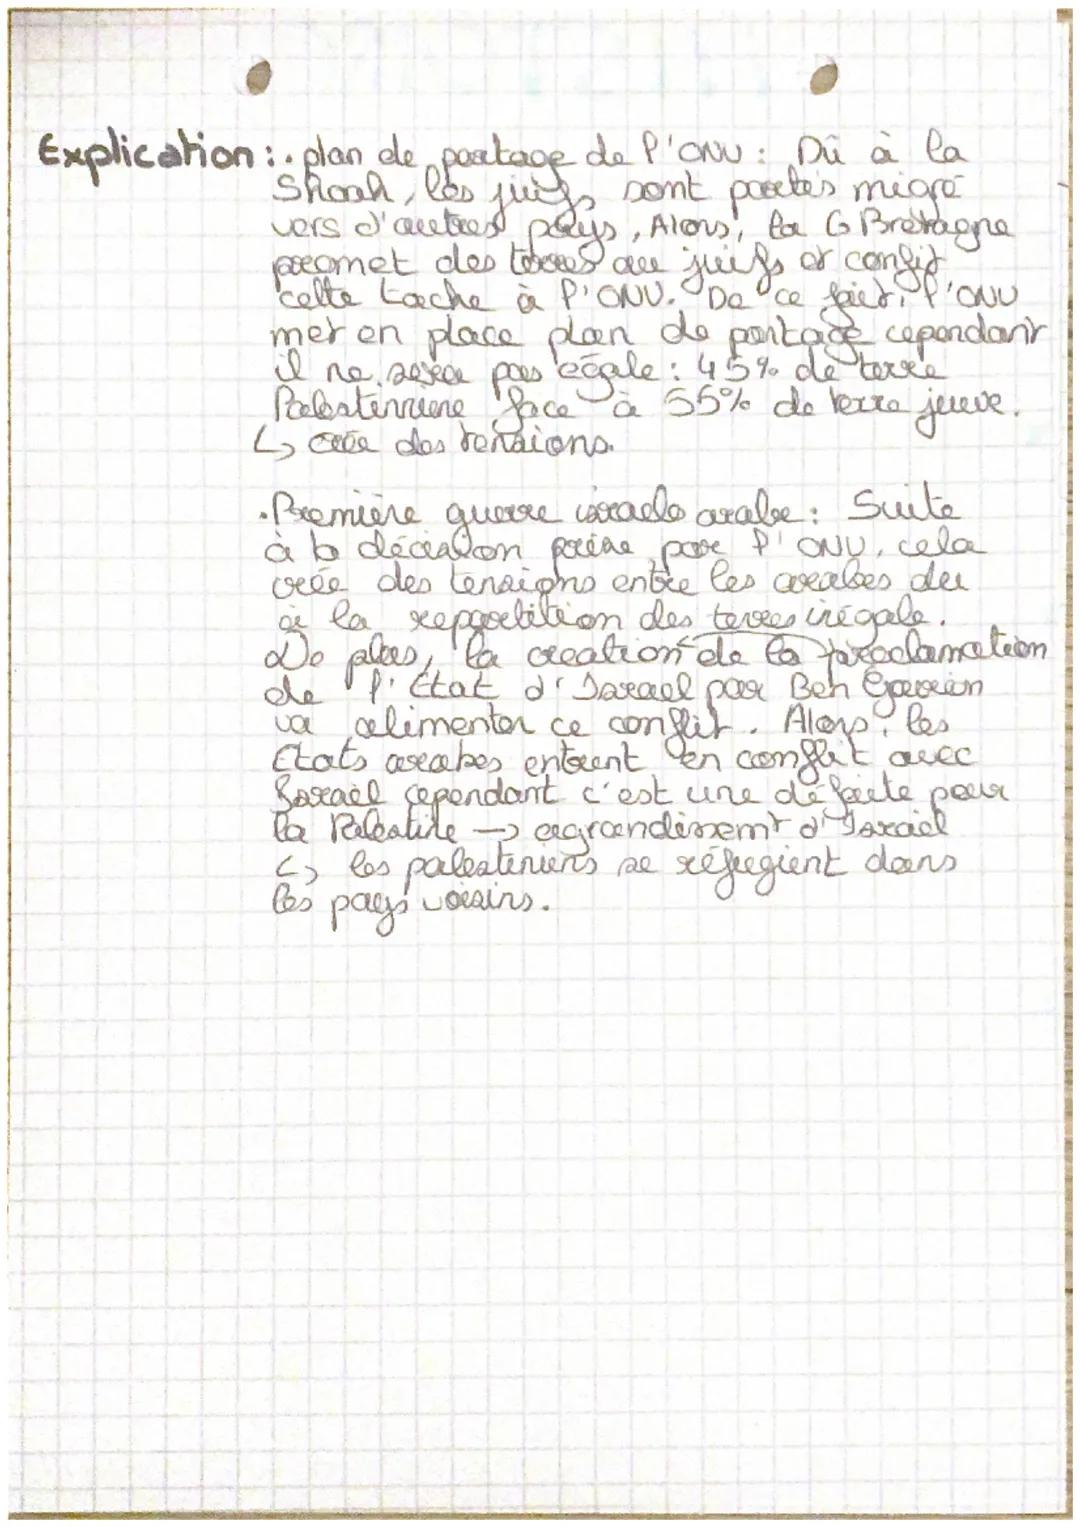 Explication : . plan de partage de l'ONU : Dû à la
Shoah, les juifs sont partis migré
vers d'autres pays, Alors, la G Bretagne
promet des terres au juifs et confit
cette tache à l'ONU. De ce fait, l'ONU
met en place plan de partage cependant
il ne sera pas égale : 45% de terre
Palestinniene face à 55% de terre jueve.
↳ crée des tensions.
. Première guerre israelo arabe : Suite
à la décision prise par l'ONU, cela
crée des tensions entre les arabes du
à la repartition des terres inégale.
De plus, la creation de la proclamation
de l'Etat d'Israel par Ben Gourion
va alimenter ce conflit. Alors, les
Etats arabes entrent en conflit avec
Israël cependant c'est une défaite pour
la Palestine → agrandissemt d'Israël
↳ les palestiniens se réfugient dans
les pays voisins.